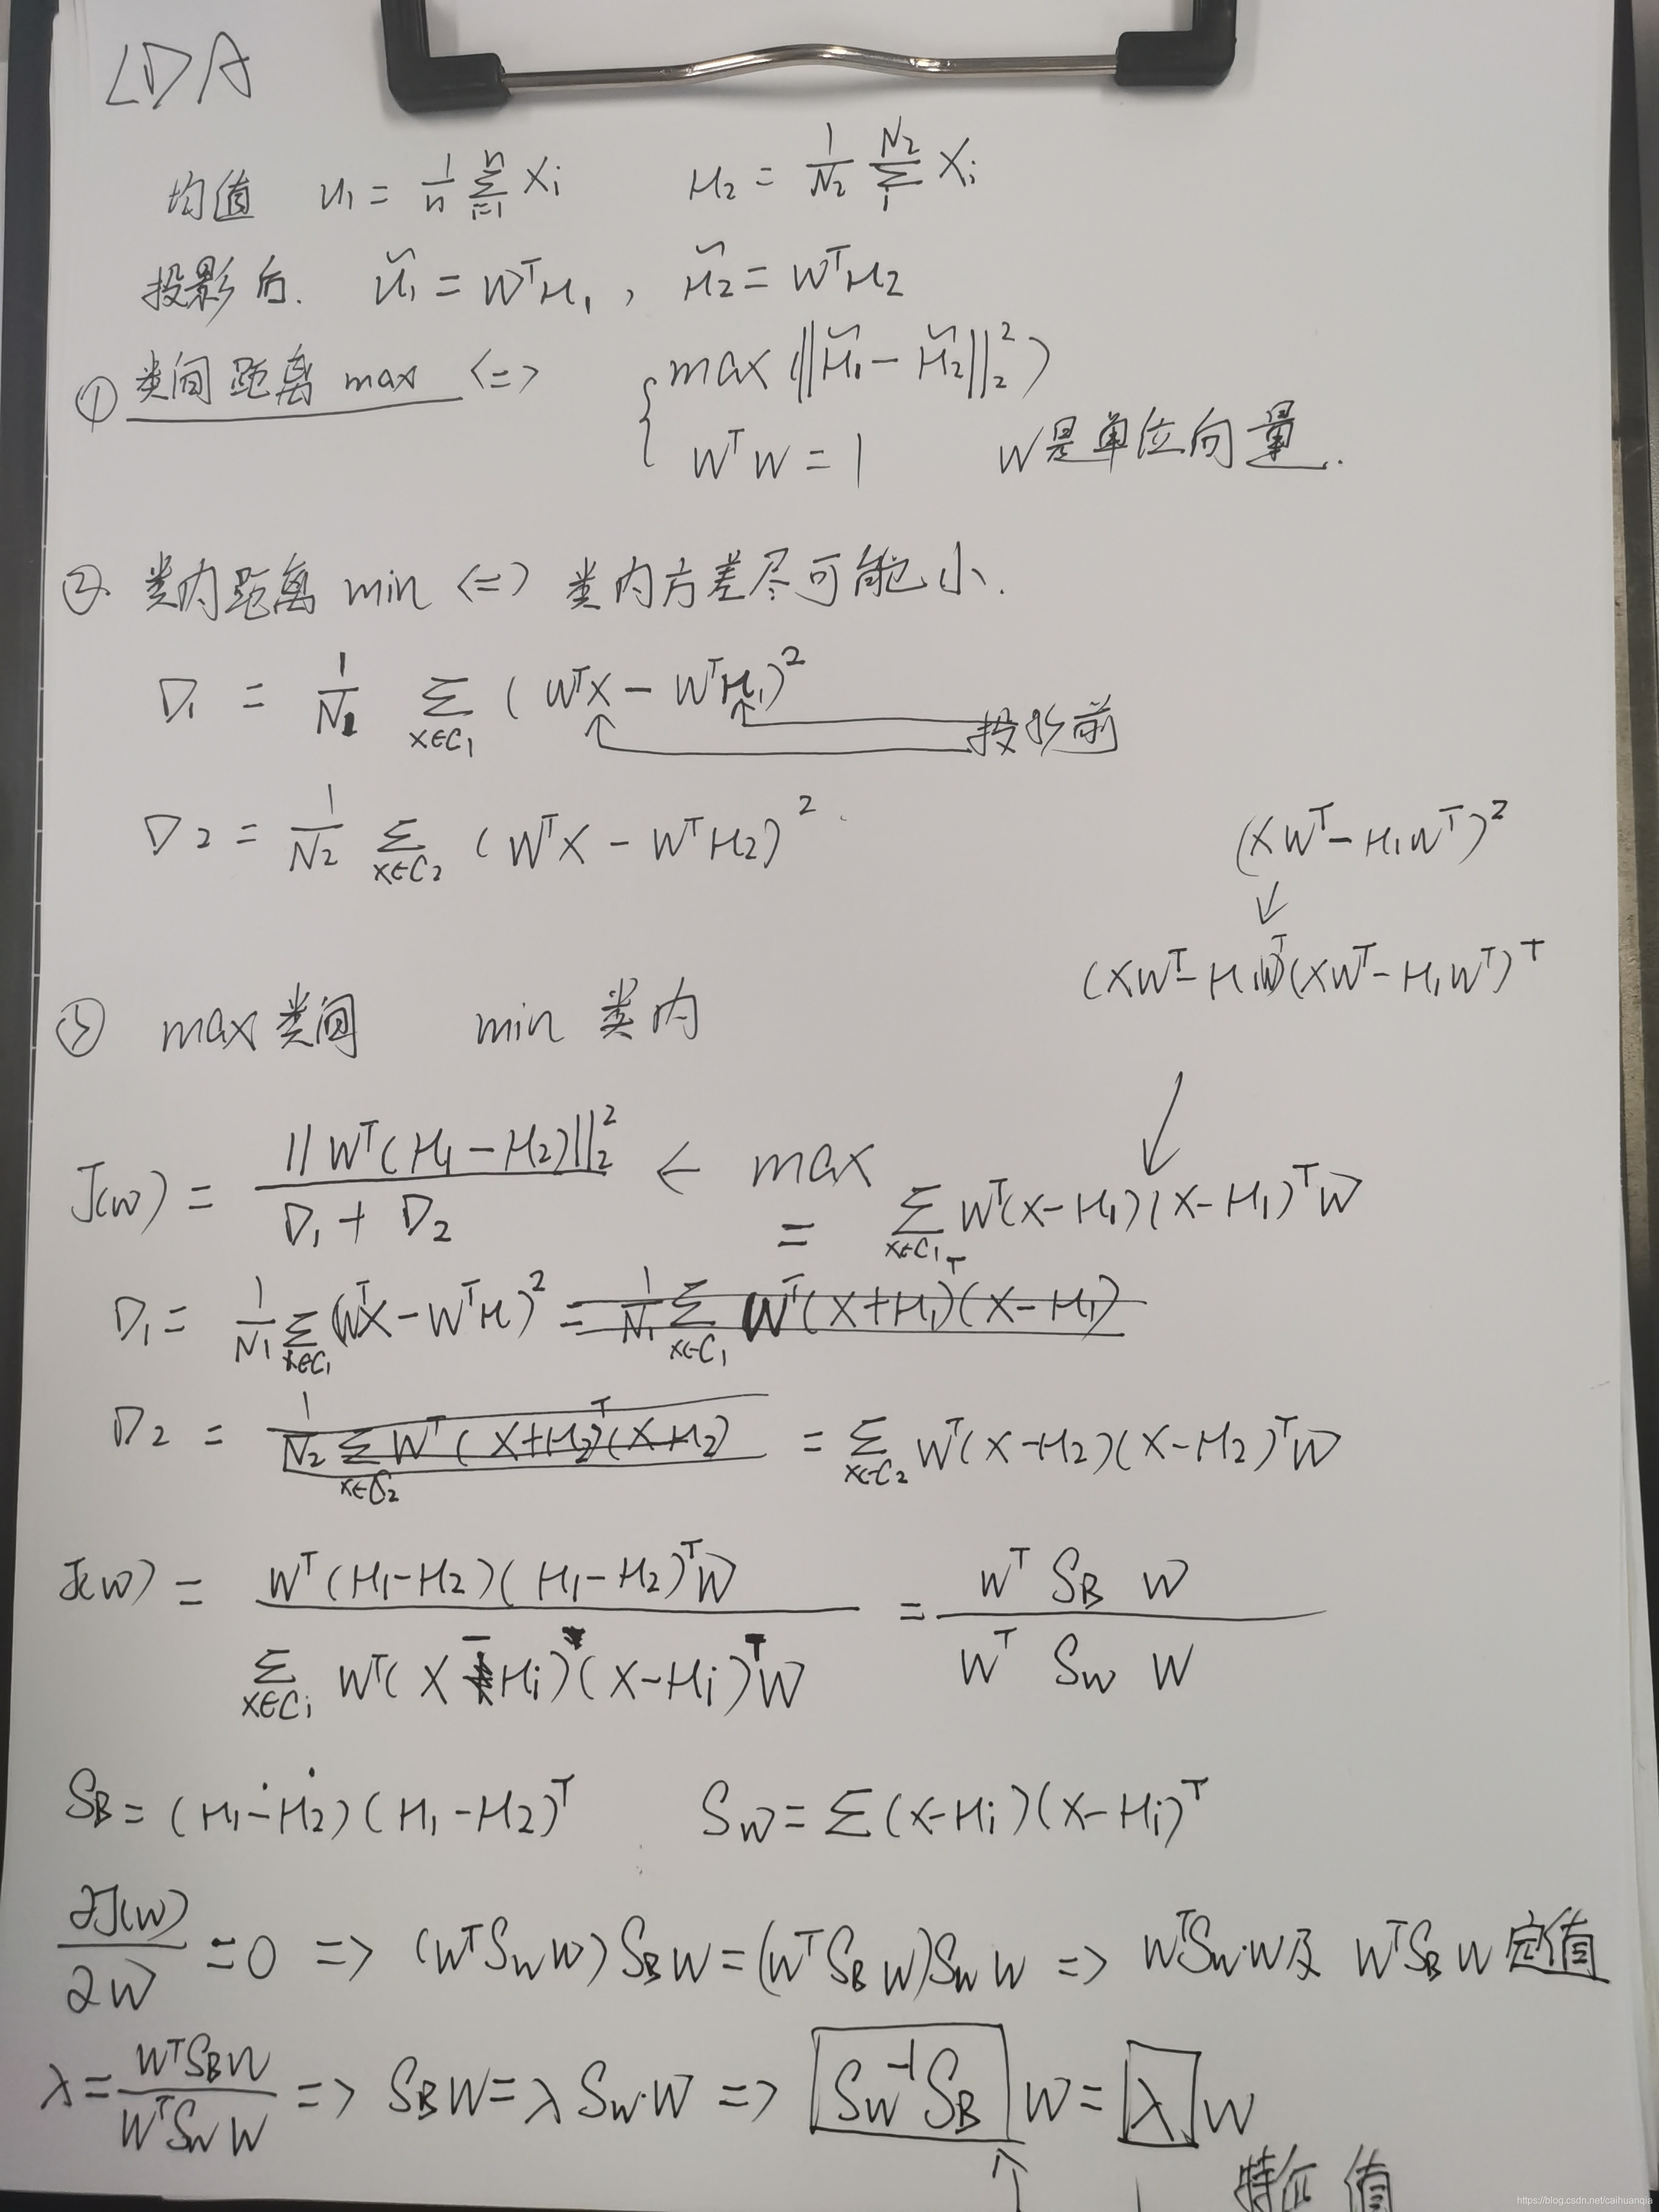 LDA
均值 u₁ = 1/n Σ_{i=1}^{n} Xi μ₂ = 1/N₂ Σ_{1}^{N₂} Xi
投影后. ũ₁ = Wᵀμ₁ , μ̃₂ = Wᵀμ₂
① 类间距离 max <=> { max (||μ̃₁ - μ̃₂||₂²)
WᵀW = 1 W是单位向量.
② 类内距离 min <=> 类内方差尽可能小.
D₁ = 1/N₁ Σ_{x∈C₁} (WᵀX - Wᵀμ₁)²
投影前
D₂ = 1/N₂ Σ_{x∈C₂} (WᵀX - Wᵀμ₂)²
(XWᵀ - μ₁Wᵀ)²
↓
(XWᵀ - μ₁Wᵀ)(XWᵀ - μ₁Wᵀ)ᵀ
③ max 类间 min 类内
↓
J(w) = ||Wᵀ(μ₁ - μ₂)||₂² / (D₁ + D₂) ← max
= Σ_{x∈C₁} Wᵀ(X - μ₁)(X - μ₁)ᵀW
D₁ = 1/N₁ Σ_{x∈C₁} (WᵀX - Wᵀμ)² = 1/N₁ Σ_{x∈C₁} Wᵀ(X + μ₁)ᵀ(X - μ₁)
D₂ = 1/N₂ Σ_{x∈C₂} Wᵀ(X + μ₂)ᵀ(X - μ₂) = Σ_{x∈C₂} Wᵀ(X - μ₂)(X - μ₂)ᵀW
J(w) = Wᵀ(μ₁ - μ₂)(μ₁ - μ₂)ᵀW / Σ_{x∈Ci} Wᵀ(X - μi)(X - μi)ᵀW = Wᵀ S_B W / Wᵀ S_W W
S_B = (μ₁ - μ₂)(μ₁ - μ₂)ᵀ S_W = Σ(X - μi)(X - μi)ᵀ
∂J(w)/∂W = 0 => (WᵀS_W W) S_B W = (WᵀS_B W) S_W W => WᵀS_W·W及 WᵀS_B W 定值
λ = WᵀS_B W / WᵀS_W W => S_B W = λ S_W·W => S_W⁻¹ S_B W = λ W
↑ 特征值
https://blog.csdn.net/caihuanqia